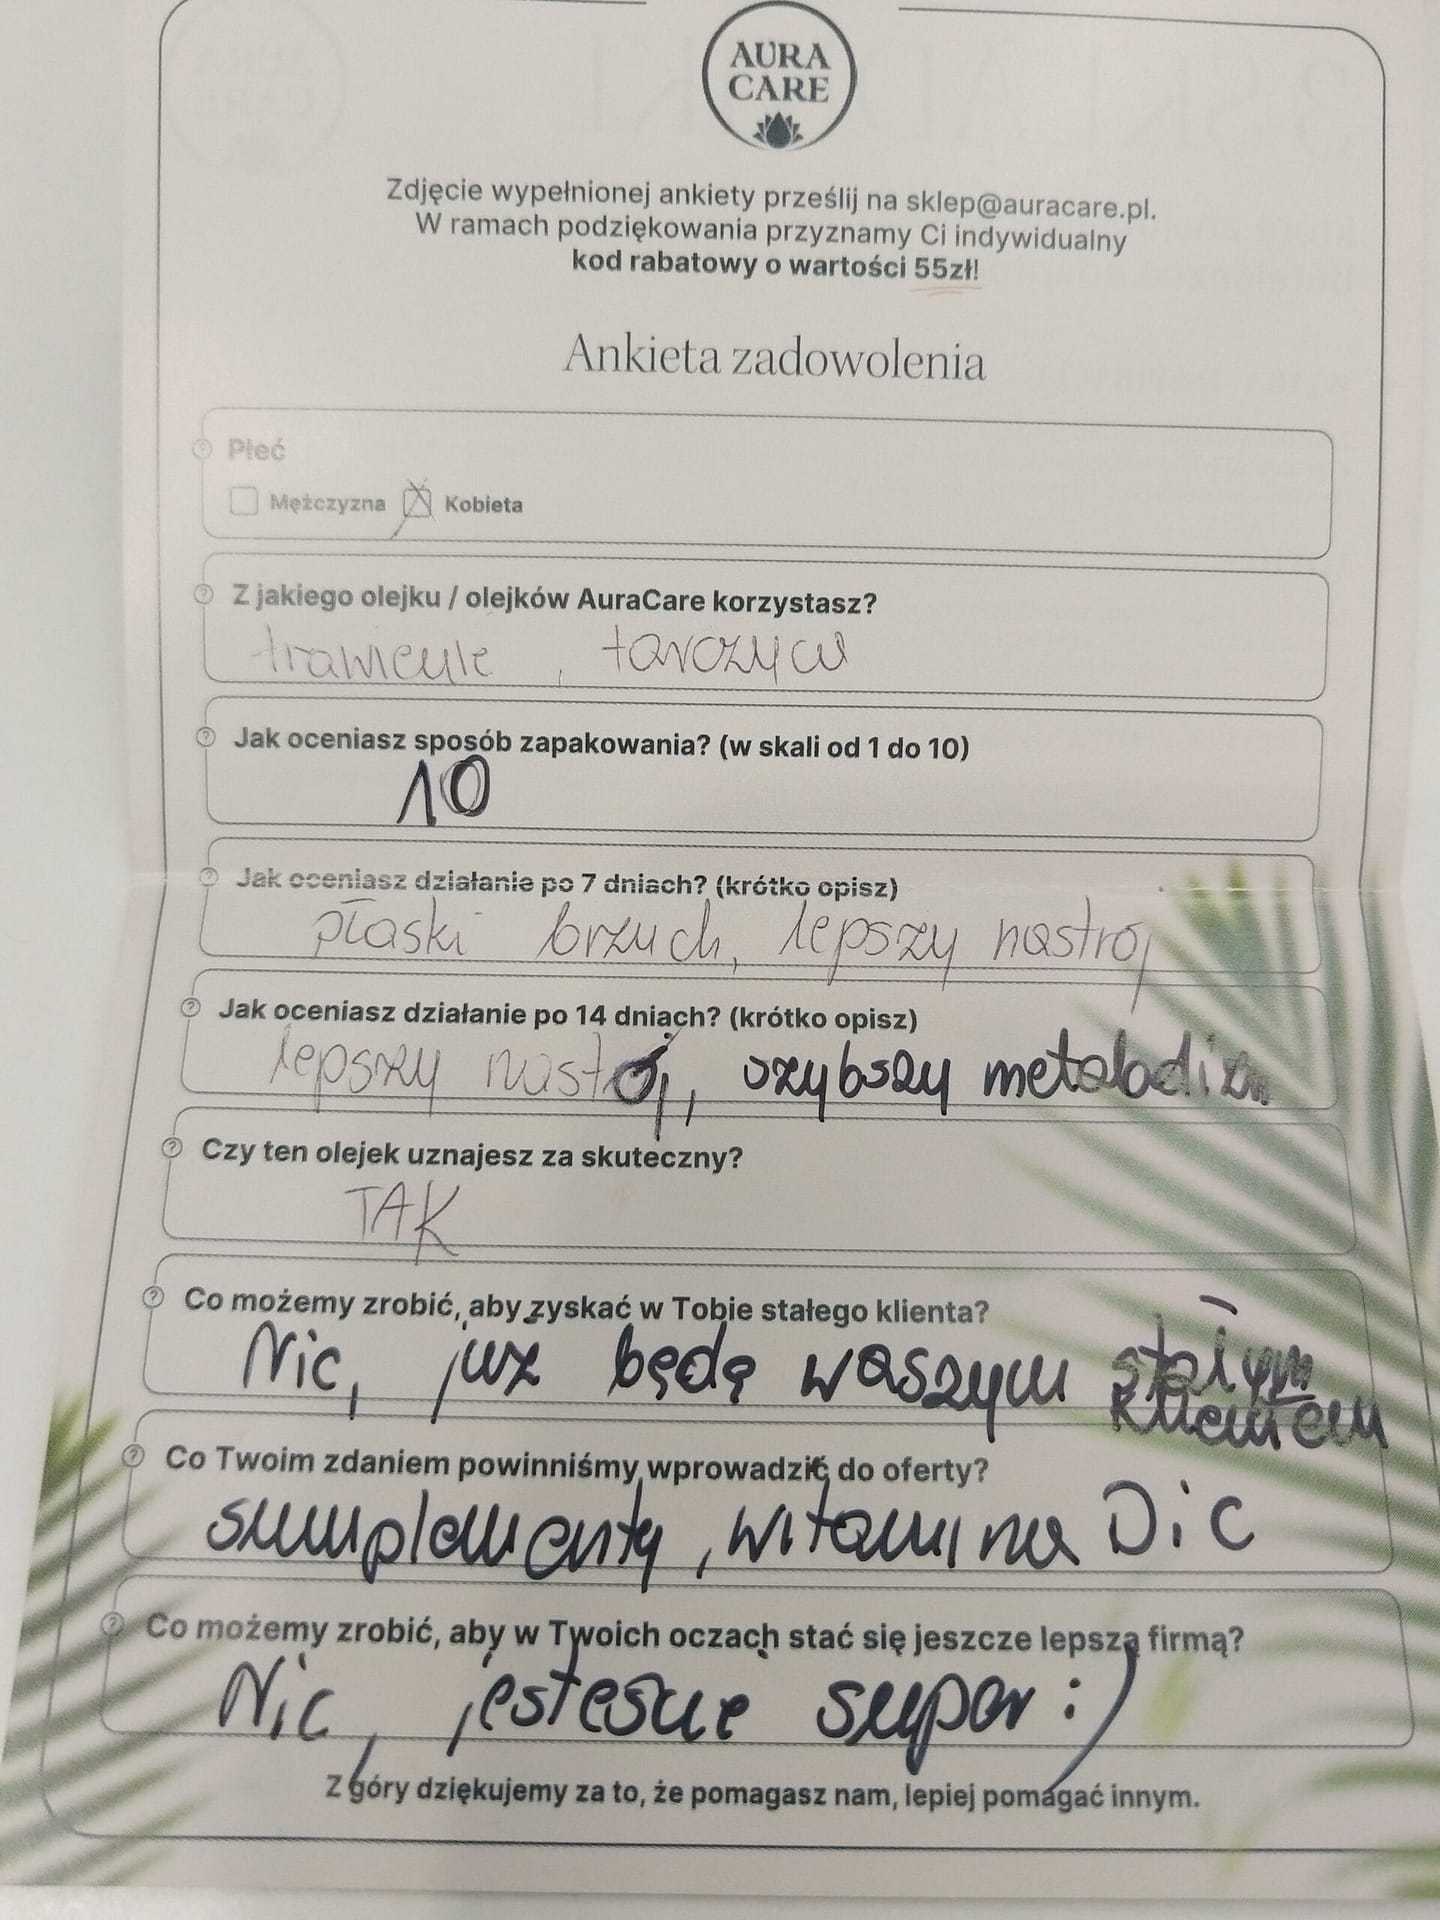 AURA
CARE
Zdjęcie wypełnionej ankiety prześlij na sklep@auracare.pl.
W ramach podziękowania przyznamy Ci indywidualny
kod rabatowy o wartości 55zł!
Ankieta zadowolenia
Płeć
Mężczyzna X Kobieta
Z jakiego olejku / olejków AuraCare korzystasz?
trawienie, tarczyca
Jak oceniasz sposób zapakowania? (w skali od 1 do 10)
10
Jak oceniasz działanie po 7 dniach? (krótko opisz)
płaski brzuch, lepszy nastrój
Jak oceniasz działanie po 14 dniach? (krótko opisz)
lepszy nastój, szybszy metabolizm
Czy ten olejek uznajesz za skuteczny?
TAK
Co możemy zrobić, aby zyskać w Tobie stałego klienta?
Nic, już będę waszym stałym
klientem
Co Twoim zdaniem powinniśmy wprowadzić do oferty?
sumplementy, witamina D i C
Co możemy zrobić, aby w Twoich oczach stać się jeszcze lepszą firmą?
Nic, jesteście super :)
Z góry dziękujemy za to, że pomagasz nam, lepiej pomagać innym.